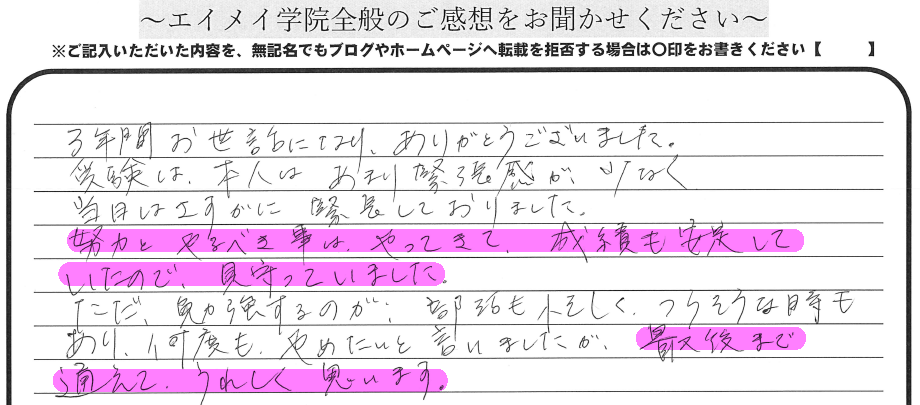 ～エイメイ学院全般のご感想をお聞かせください～
※ご記入いただいた内容を、無記名でもブログやホームページへ転載を拒否する場合は〇印をお書きください【　　】
3年間お世話になり、ありがとうございました。
受験は、本人はあまり緊張感が少なく
当日はさすがに緊張しておりました。
努力とやるべき事は、やってきて、成績も安定して
いたので、見守っていました。
ただ、勉強するのが、部活も忙しく、つらそうな時も
あり、何度も、やめたいと言いましたが、最後まで
通えて、うれしく思います。